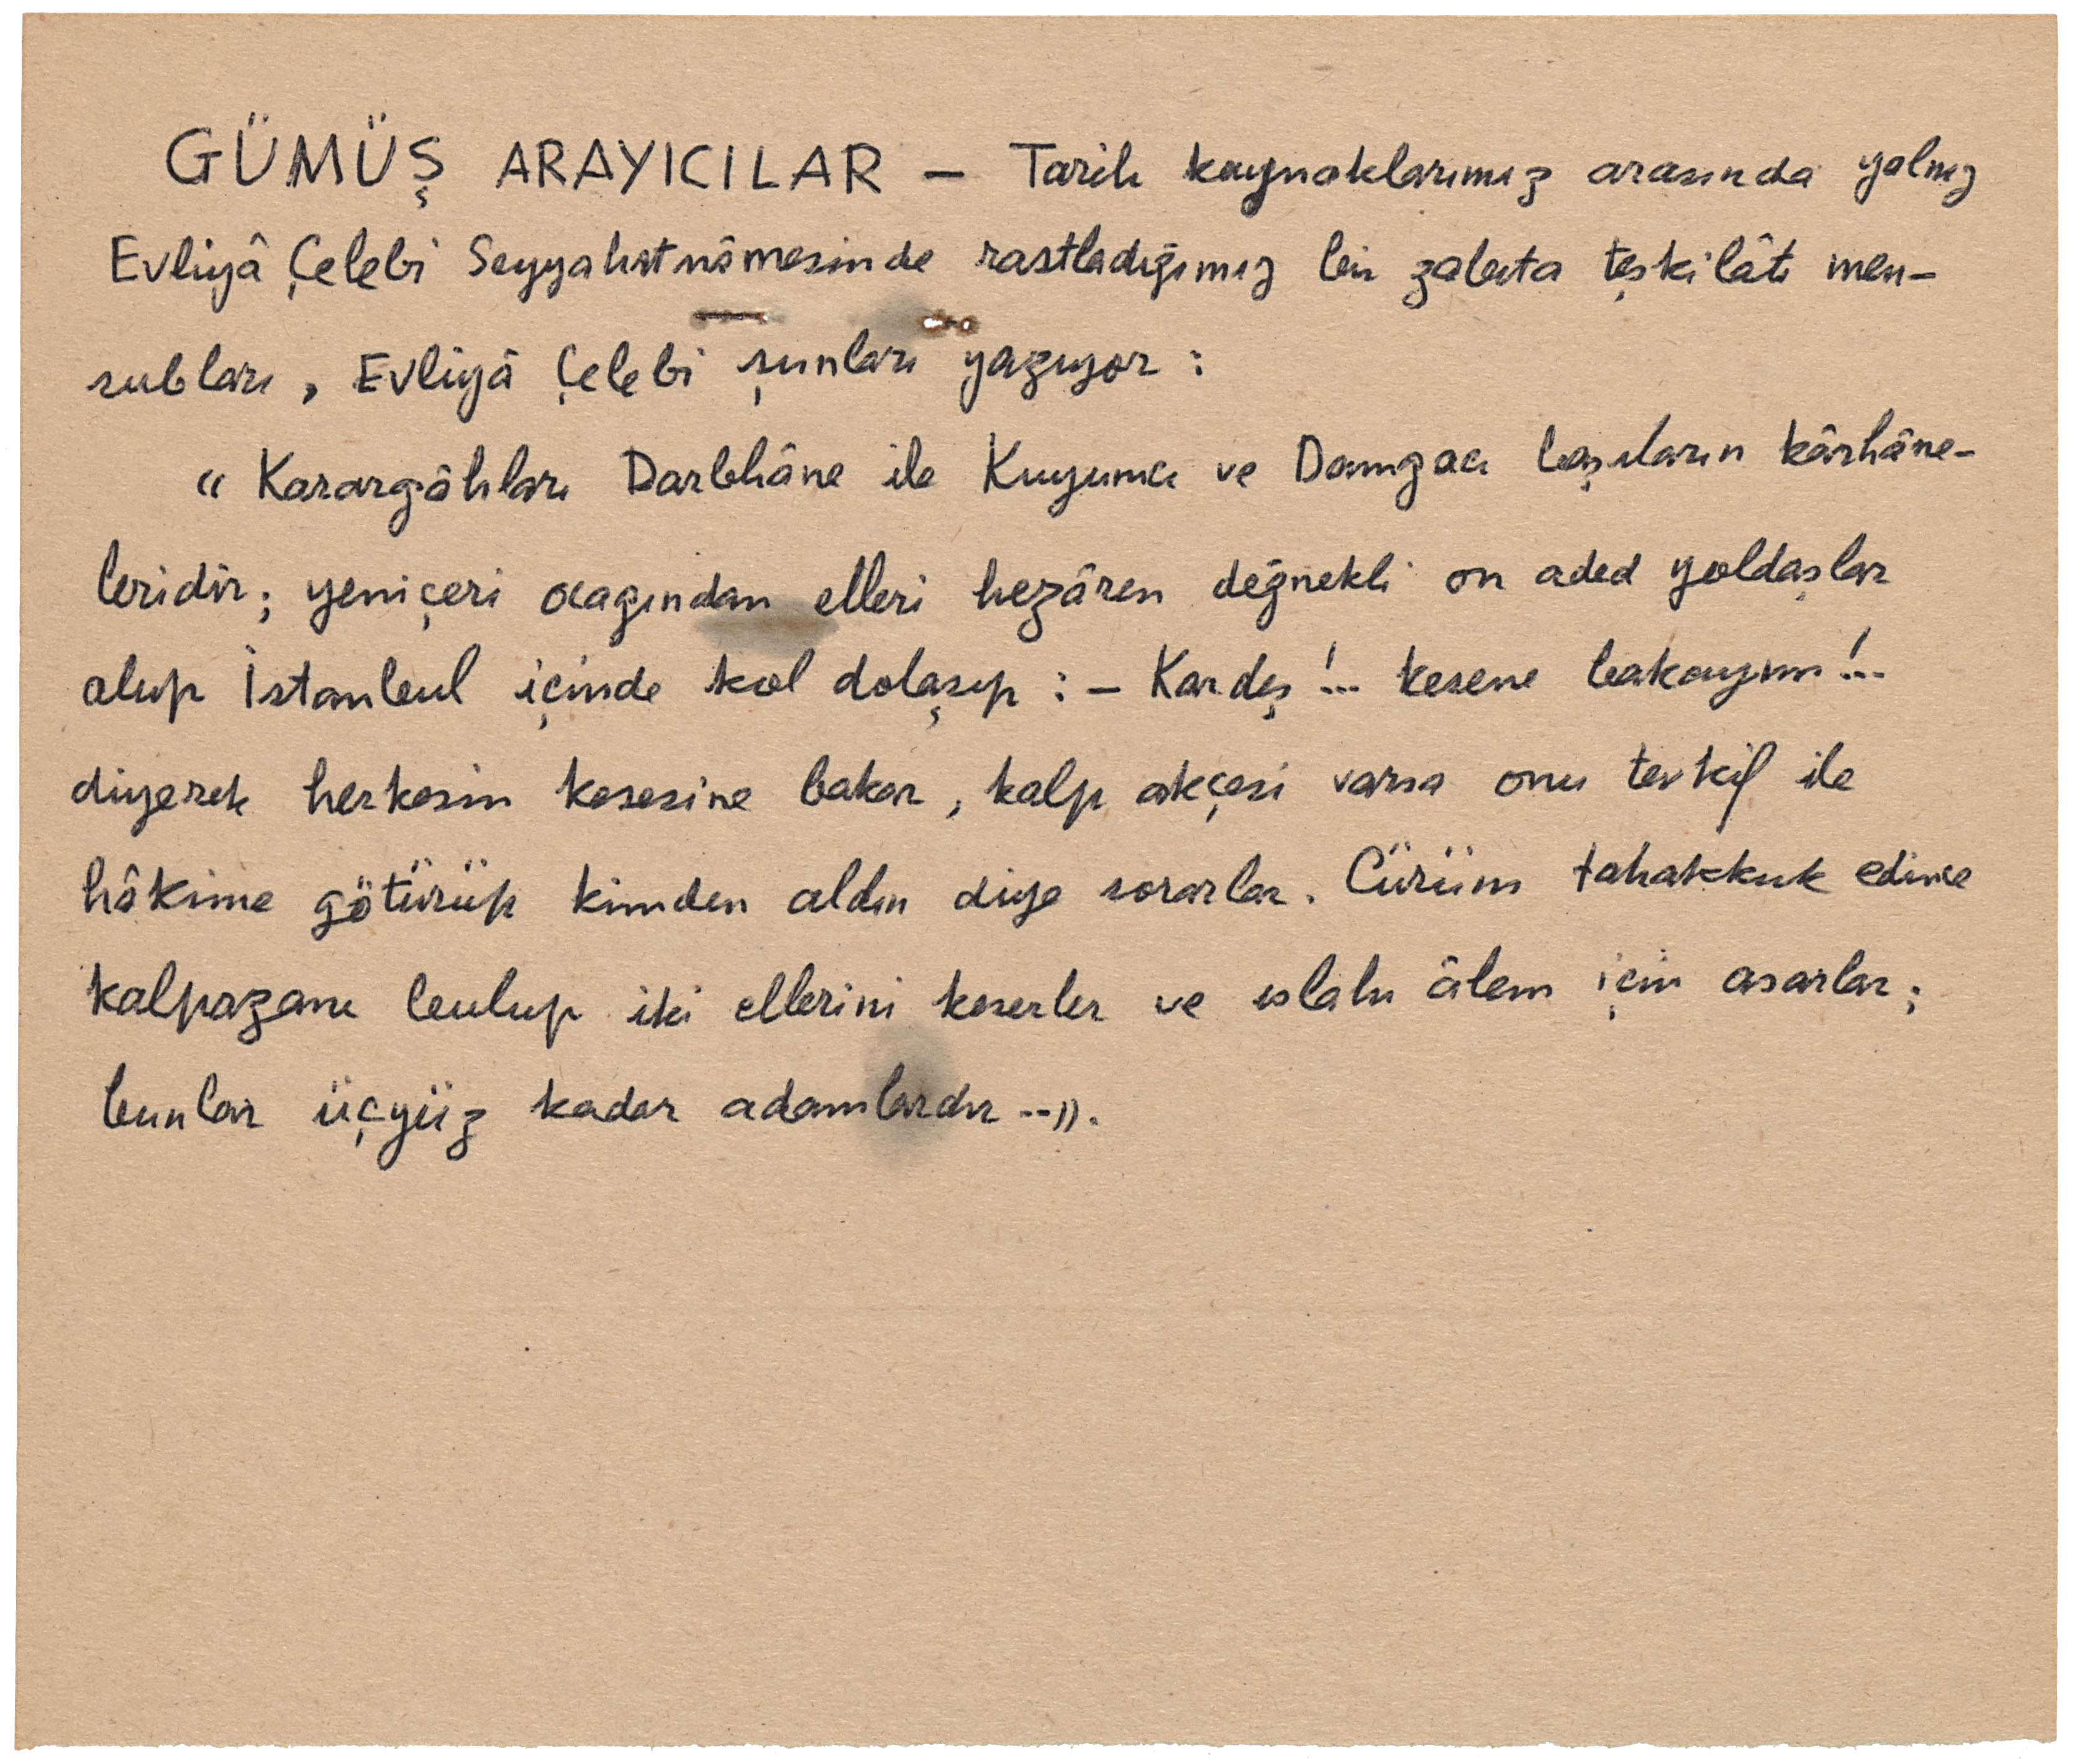 GÜMÜŞ ARAYICILAR — Tarih kaynaklarımız arasında yalnız
Evliyâ Çelebi Seyyahatnâmesinde rastladığımız bir zabıta teşkilâtı men-
subları, Evliyâ Çelebi şunları yazıyor :
"Karargâhları Darbhâne ile Kuyumcu ve Damgacı başıların kârhâne-
leridir; yeniçeri ocagından elleri hezâren değnekli on aded yoldaşlar
alup İstanbul içinde kol dolaşıp : — Kardeş!.. kesene bakayım!..
diyerek herkesin kesesine bakar, kalp akçesi varsa onu tevkif ile
hâkime götürüp kimden aldın diye sorarlar. Cürüm tahakkuk edince
kalpazanı bulup iki ellerini keserler ve ıslahı âlem için asarlar;
bunlar üçyüz kadar adamlardır..".